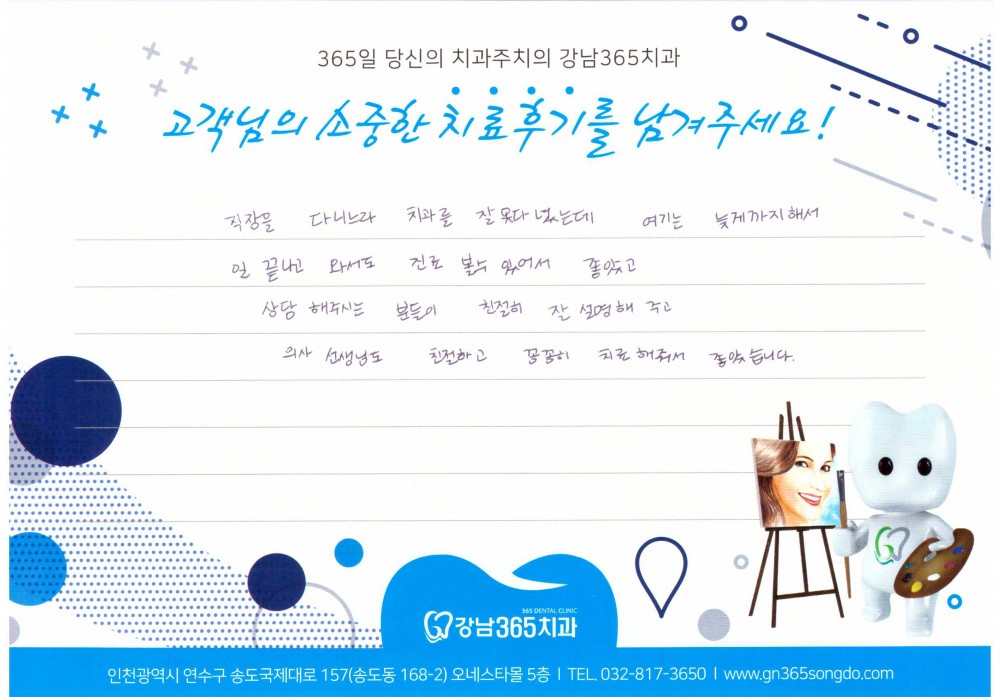 365일 당신의 치과주치의 강남365치과
고객님의 소중한 치료후기를 남겨주세요!
직장을 다니느라 치과를 잘 못다녔는데 여기는 늦게까지해서
일 끝나고 와서도 진료 볼수 있어서 좋았고
상담 해주시는 분들이 친절히 잘 설명해 주고
의사 선생님도 친절하고 꼼꼼히 치료해줘서 좋았습니다.
365 DENTAL CLINIC
강남365치과
인천광역시 연수구 송도국제대로 157(송도동 168-2) 오네스타몰 5층 | TEL. 032-817-3650 | www.gn365songdo.com